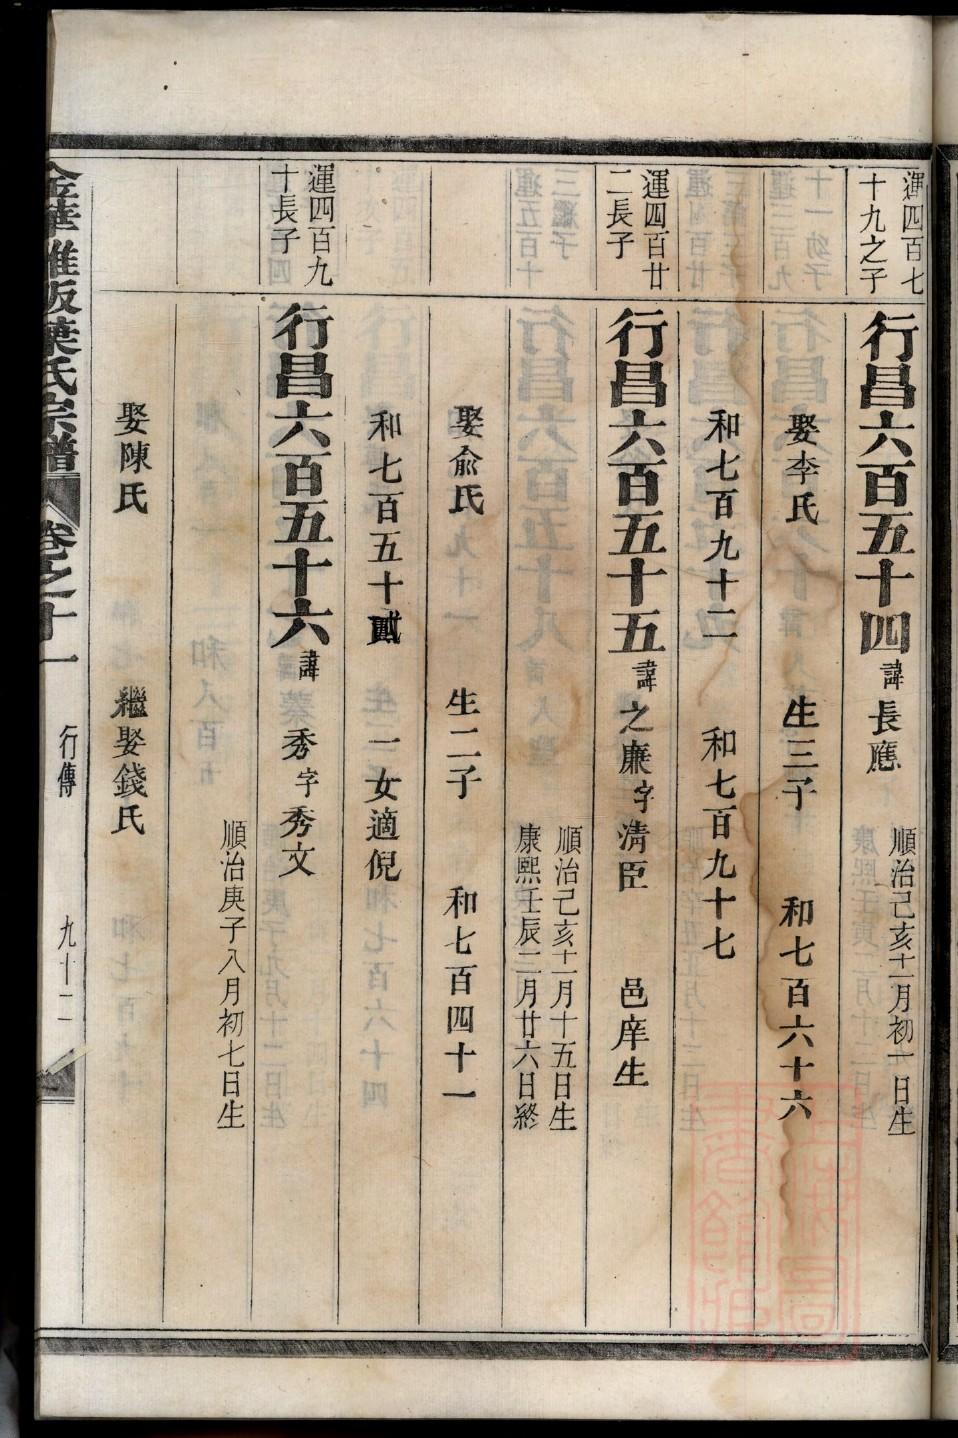 運四百七
十九之子
行昌六百五十四 諱長應
順治己亥十二月初一日生
娶李氏 生三子 和七百六十六
和七百九十二 和七百九十七
運四百廿
二長子
行昌六百五十五 諱之廉 字清臣 邑庠生
順治己亥十二月十五日生
康熙壬辰二月廿六日終
娶俞氏 生二子 和七百四十一
和七百五十貳 一女適倪
運四百九
十長子
行昌六百五十六 諱秀 字秀文
順治庚子八月初七日生
娶陳氏 繼娶錢氏
葉氏宗譜 卷之十一 行傳 九十二